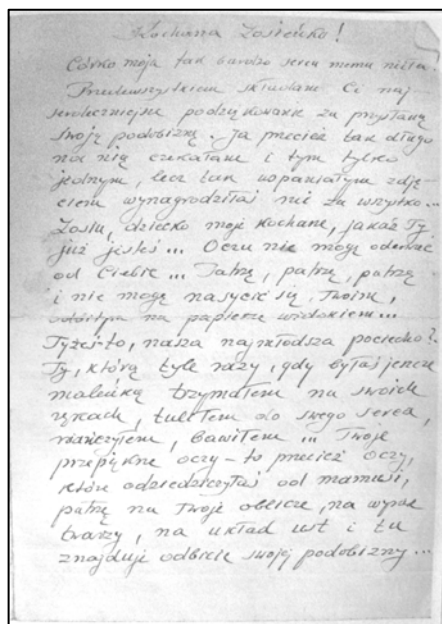 Kochana Zosieńko!
Córko moja tak bardzo sercu memu miła.
Przedewszystkiem składam Ci naj-
serdeczniejsze podziękowanie za przysłaną
swoją podobiznę. Ja przecież tak długo
na nią czekałam i tym tylko
jednym, lecz tak wspaniałym zdję-
ciem wynagrodziłaś mi za wszystko...
Zosiu, dziecko moje kochane, jakaż Ty
już jesteś... Oczu nie mogę oderwać
od Ciebie... Patrzę, patrzę, patrzę
i nie mogę nasycić się, Twoim,
odbitym na papierze widokiem...
Tyżeś to, nasza najmłodsza pociecho?
Ty, którą tyle razy, gdy byłaś jeszcze
maleńką trzymałem na swoich
rękach, tuliłem do swego serca,
niańczyłem, bawiłem... Twoje
przepiękne oczy - to przecież oczy,
które odziedziczyłaś od mamusi,
patrzę na Twoje oblicze, na wyraz
twarzy, na układ ust i tu
znajduję odbicie swojej podobizny...